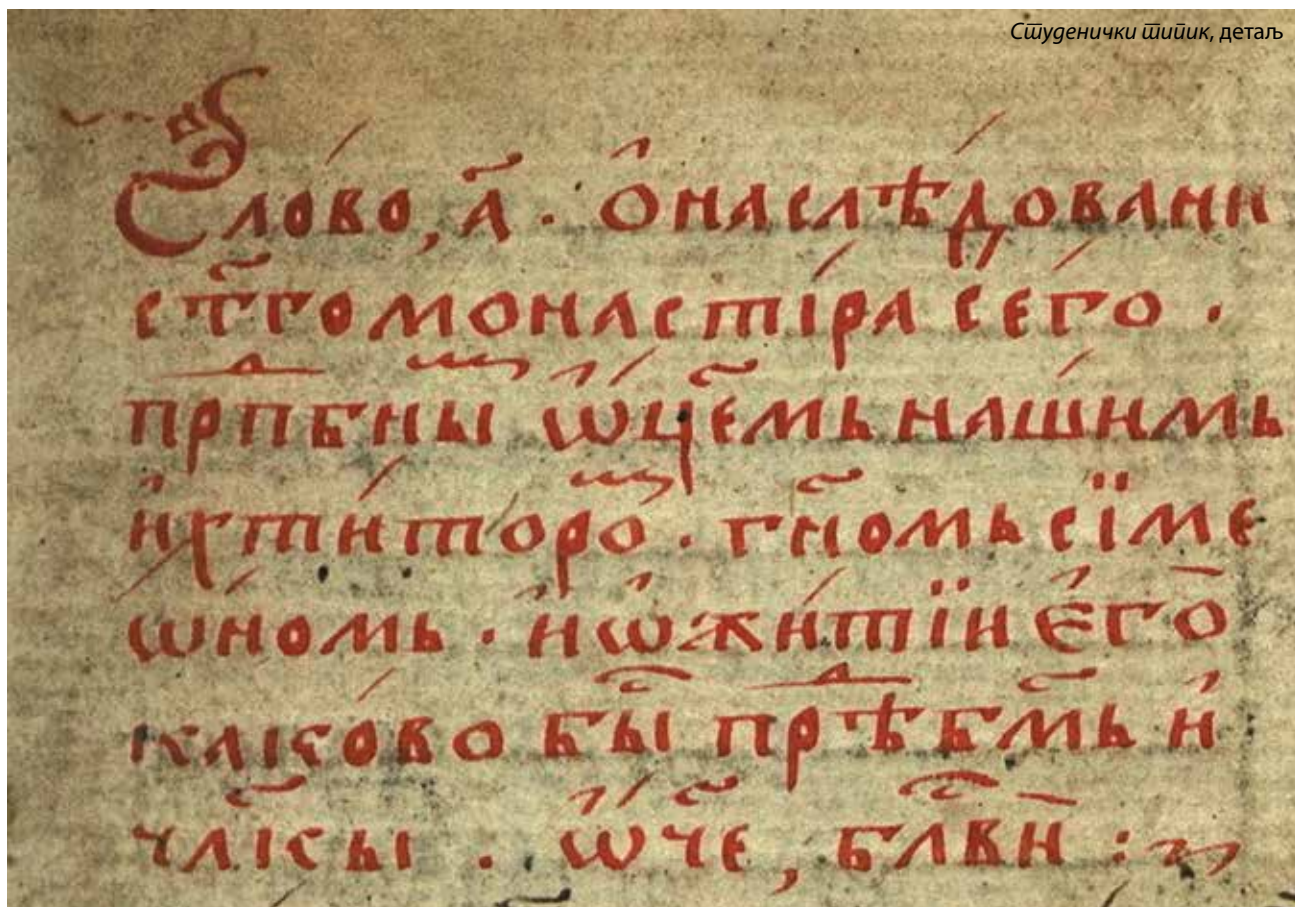 Студенички типик, детаљ
Слово, а҃ · О наслѣдовани
ст҃го монастіра сего ·
прпⷣбныⷨ ѡц҃емь нашимь
и хтиторѡⷨ · гн҃омь сіме
ѡномь · и ѡ житїи его
каково быⷭ҇ прѣбⷣм҃ь и
чл҃кы · ѡч҃е, блⷭ҇ви :